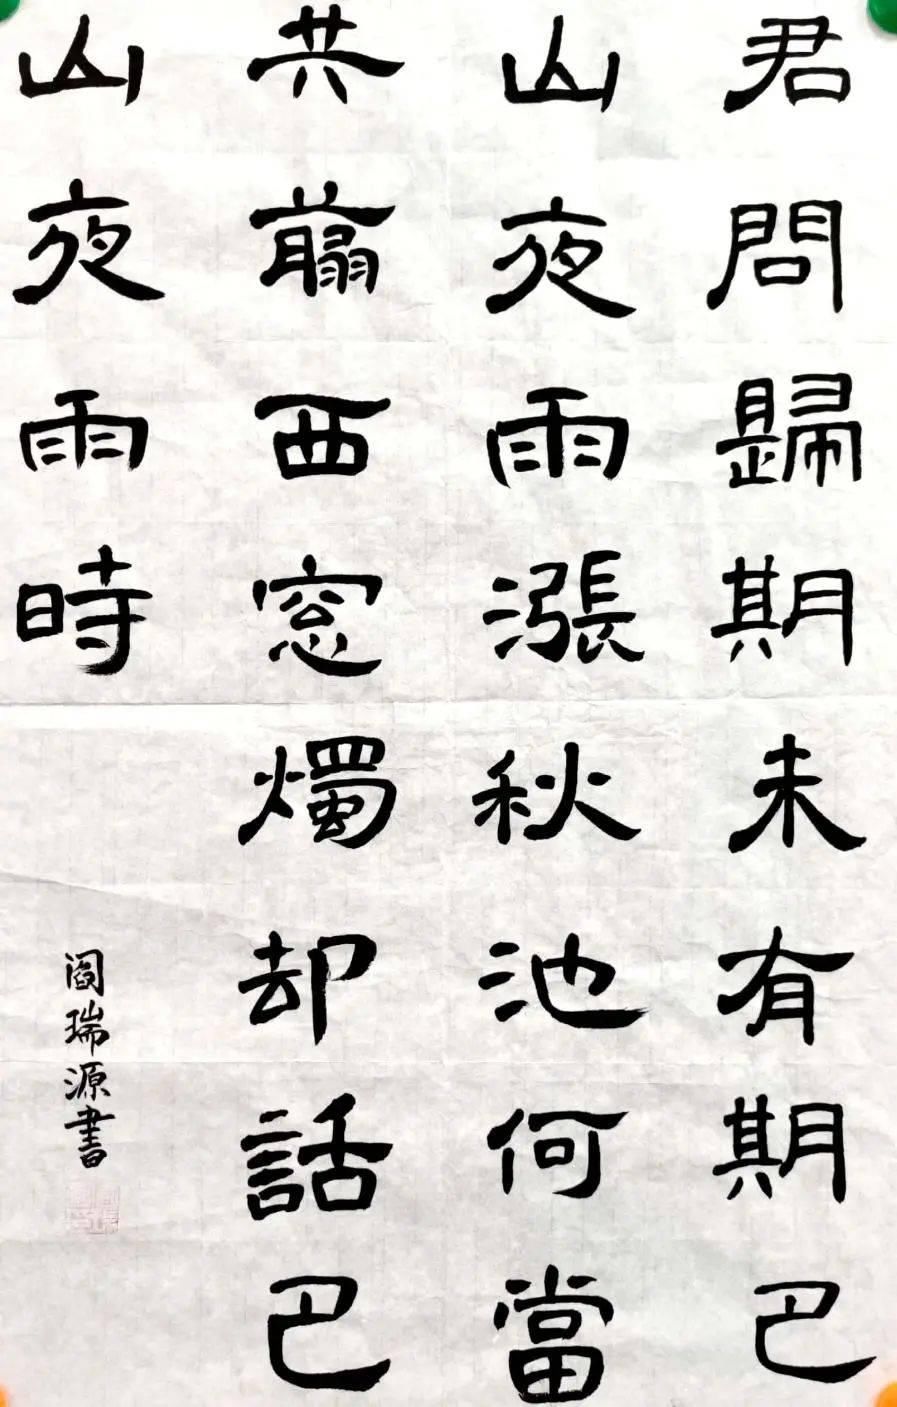 君問歸期未有期巴
山夜雨漲秋池何當
共翦西窓燭却話巴
山夜雨時
閻瑞源書